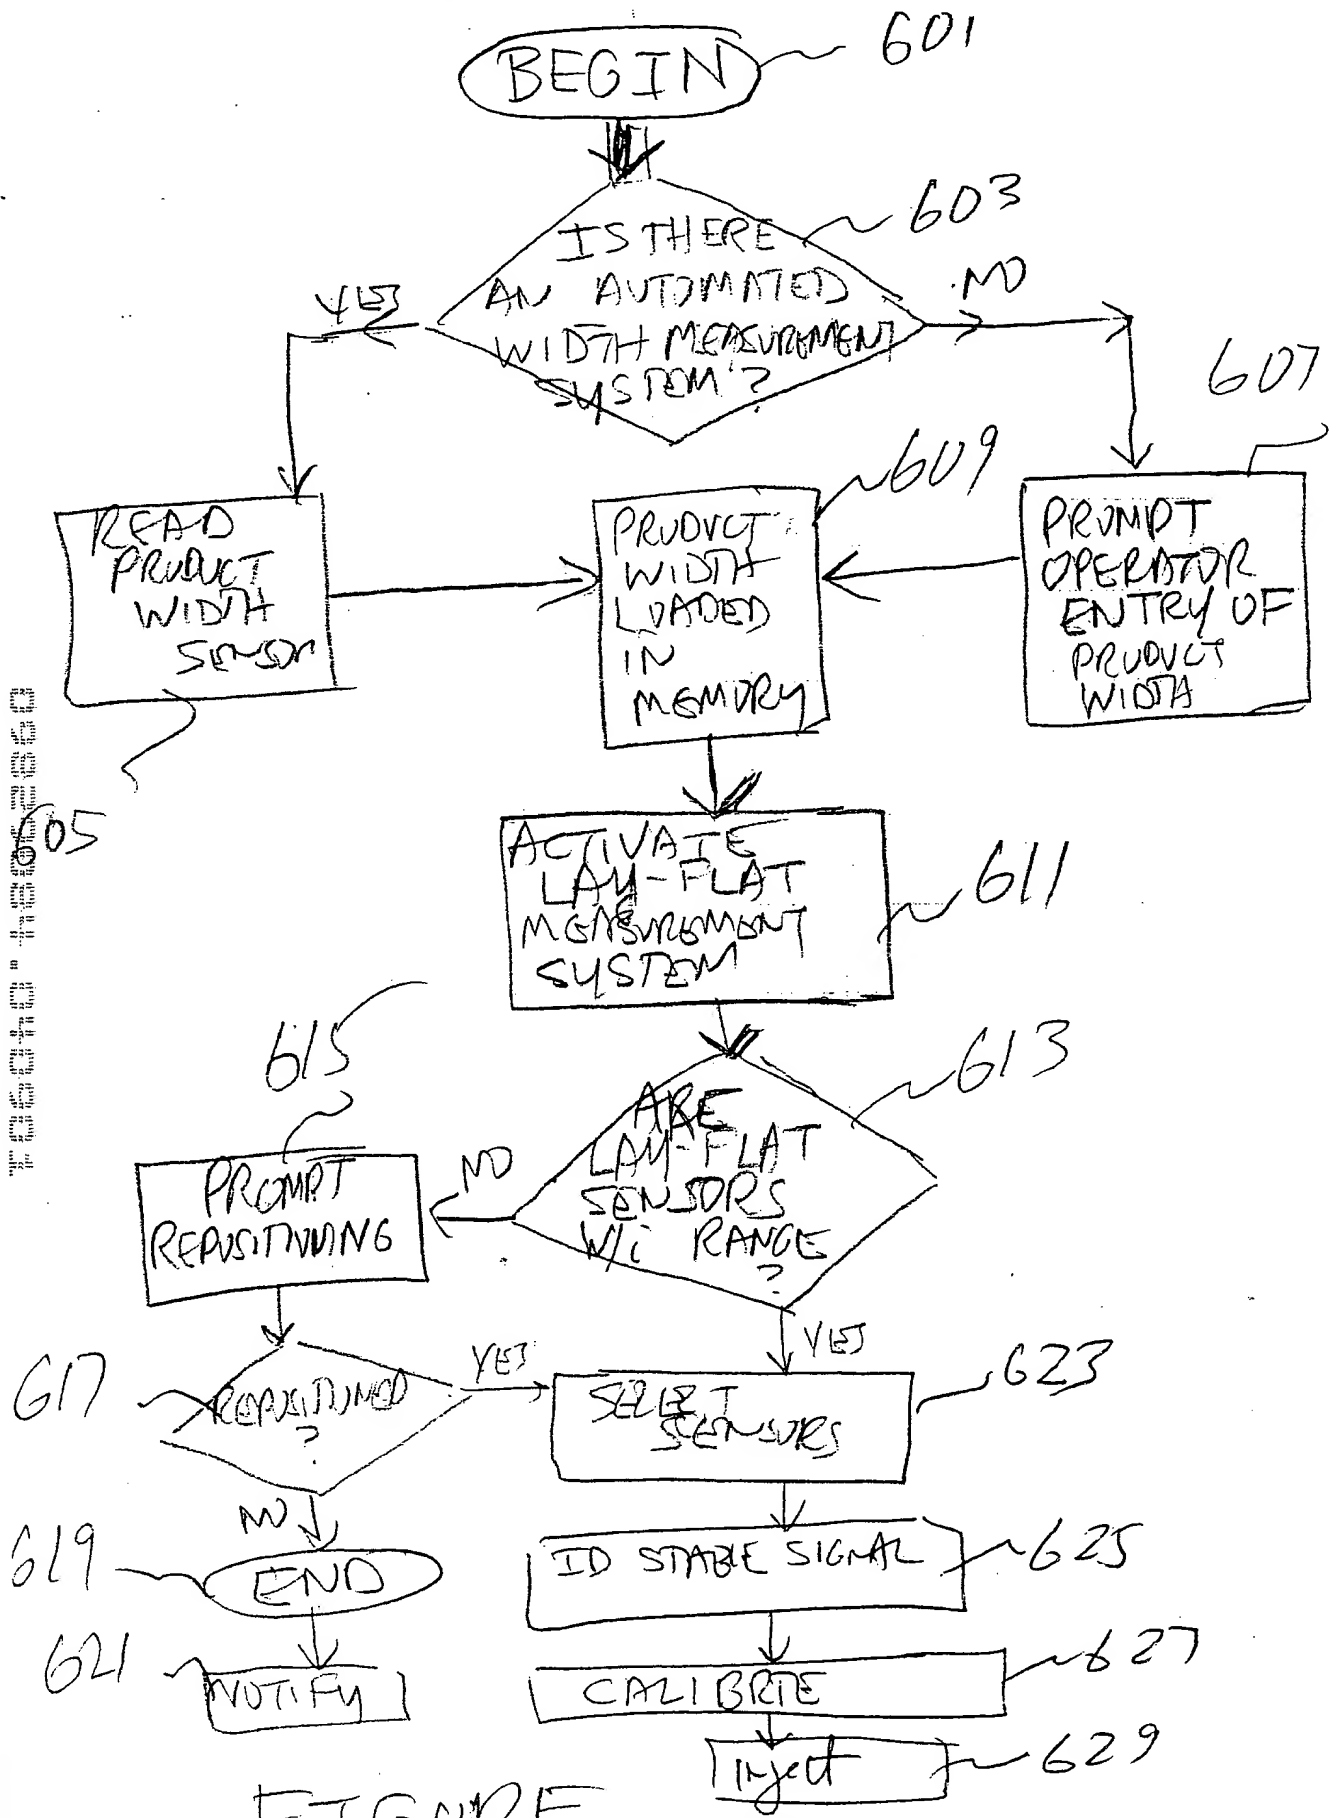 BEGIN
601
IS THERE
AN AUTOMATED
WIDTH MEASUREMENT
SYSTEM?
603
YES
NO
607
609
READ
PRODUCT
WIDTH
SENSOR
605
PRODUCT
WIDTH
LOADED
IN
MEMORY
PROMPT
OPERATOR
ENTRY OF
PRODUCT
WIDTH
ACTIVATE
LAY-FLAT
MEASUREMENT
SYSTEM
611
615
613
ARE
LAY-FLAT
SENSORS
W/i RANGE
?
NO
PROMPT
REPOSITIONING
YES
617
REPOSITIONED
?
YES
SELECT
SENSORS
623
NO
619
END
ID STABLE SIGNAL
625
621
NOTIFY
CALIBRTE
627
Inject
629
FIGURE